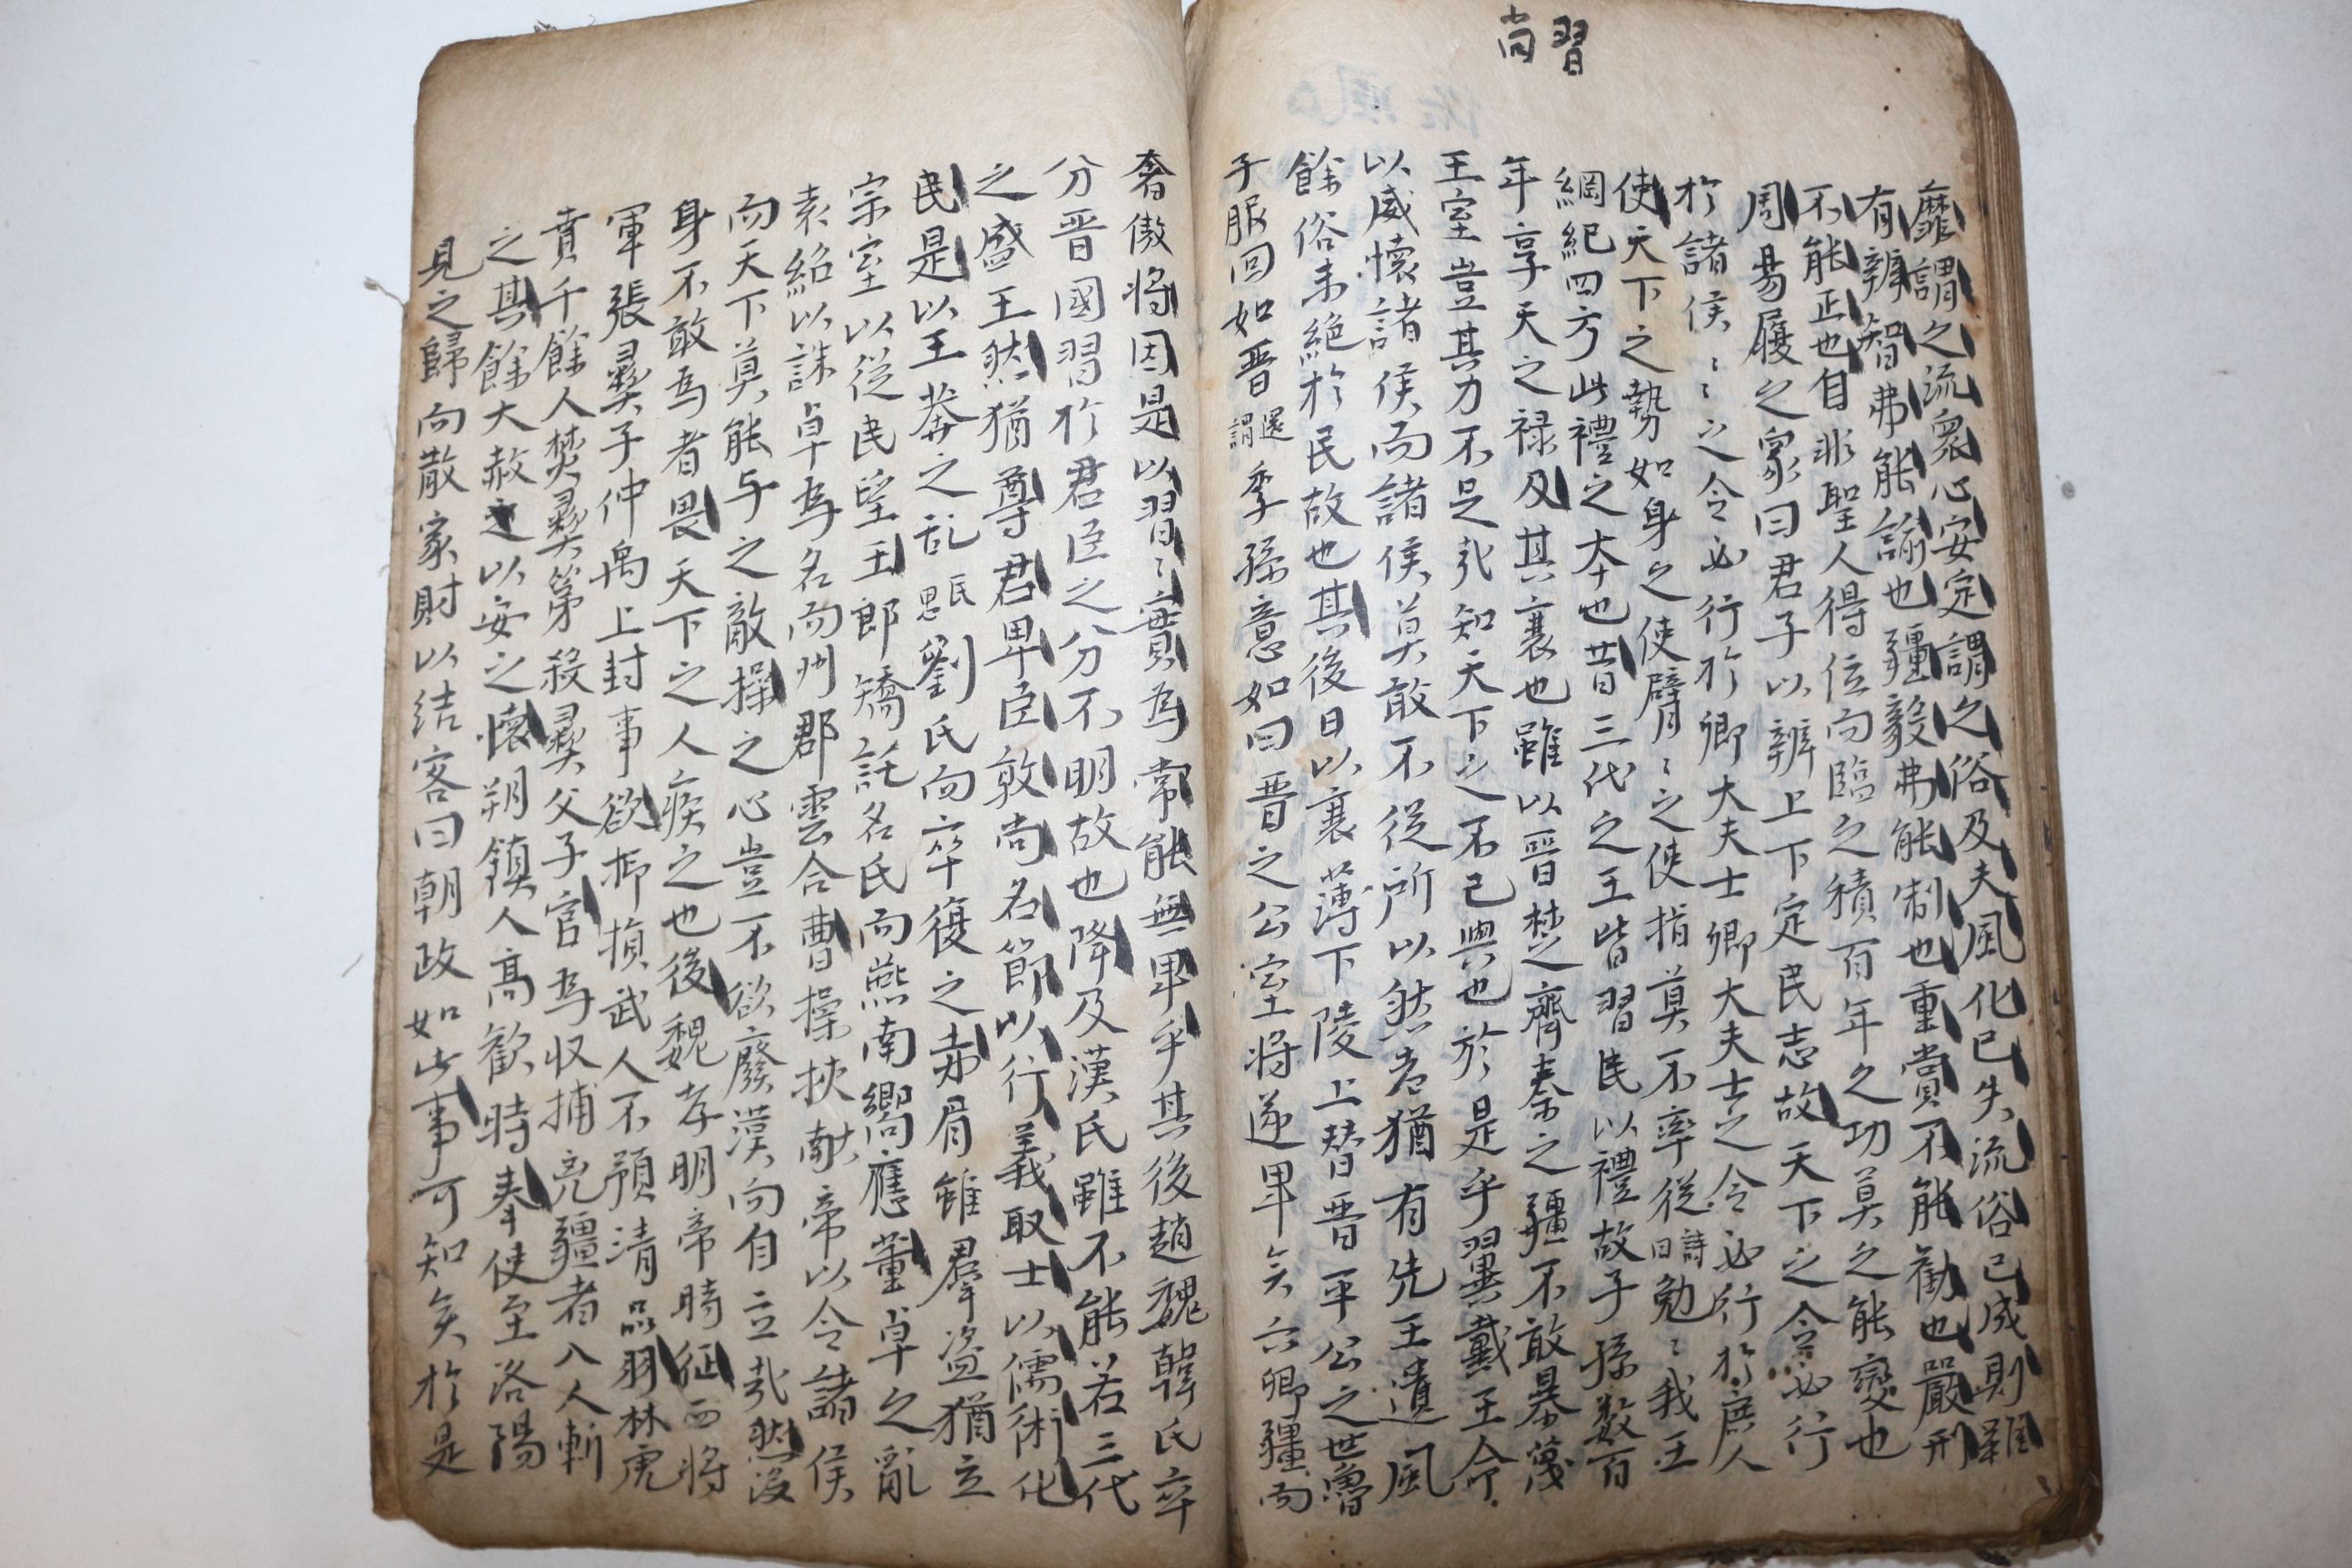 習尚
靡謂之流衆心安定謂之俗及夫風化已失流俗已成則雖
有辨智弗能諭也疆毅弗能制也重賞不能勸也嚴刑
不能正也自非聖人得位而臨之積百年之功莫之能變也
周易履之象曰君子以辨上下定民志故天下之令必行
於諸侯〻之令必行於卿大夫士卿大夫士之令必行於庶人
使天下之勢如身之使臂〻之使指莫不率從詩曰勉〻我王
綱紀四方此禮之本也昔三代之王皆習民以禮故子孫数百
年享天之禄及其衰也雖以晋楚齊秦之疆不敢暴蔑
王室豈其力不足哉知天下之不己與也於是乎翼戴王命
以威懷諸侯而諸侯莫敢不從所以然者猶有先王遺風
餘俗未絶於民故也其後日以衰薄下陵上替晋平公之世魯
子服回如晋還謂季孫意如曰晋之公室将遂卑矣六卿疆而
奢傲将因是以習〻實為常能無卑乎其後趙魏韓氏卒
分晋國習於君臣之分不明故也降及漢氏雖不能若三代
之盛王然猶尊君卑臣敦尚名節以行義取士以儒術化
民是以王莽之乱民思劉氏而卒復之赤眉雖羣盗猶立
宗室以從民望王郎矯託名氏而燕南嚮應董卓之亂
袁紹以誅卓為名而州郡雲合曹操挾献帝以令諸侯
而天下莫能与之敵操之心豈不欲廢漢而自立哉然沒
身不敢為者畏天下之人疾之也後魏孝明帝時征西将
軍張彛子仲禹上封事欲抑損武人不預清品羽林虎
賁千餘人焚彛第殺彛父子官為収捕兇疆者八人斬
之其餘大赦之以安之懷朔鎮人高歡時奉使至洛陽
見之歸而散家財以結客曰朝政如此事可知矣於是